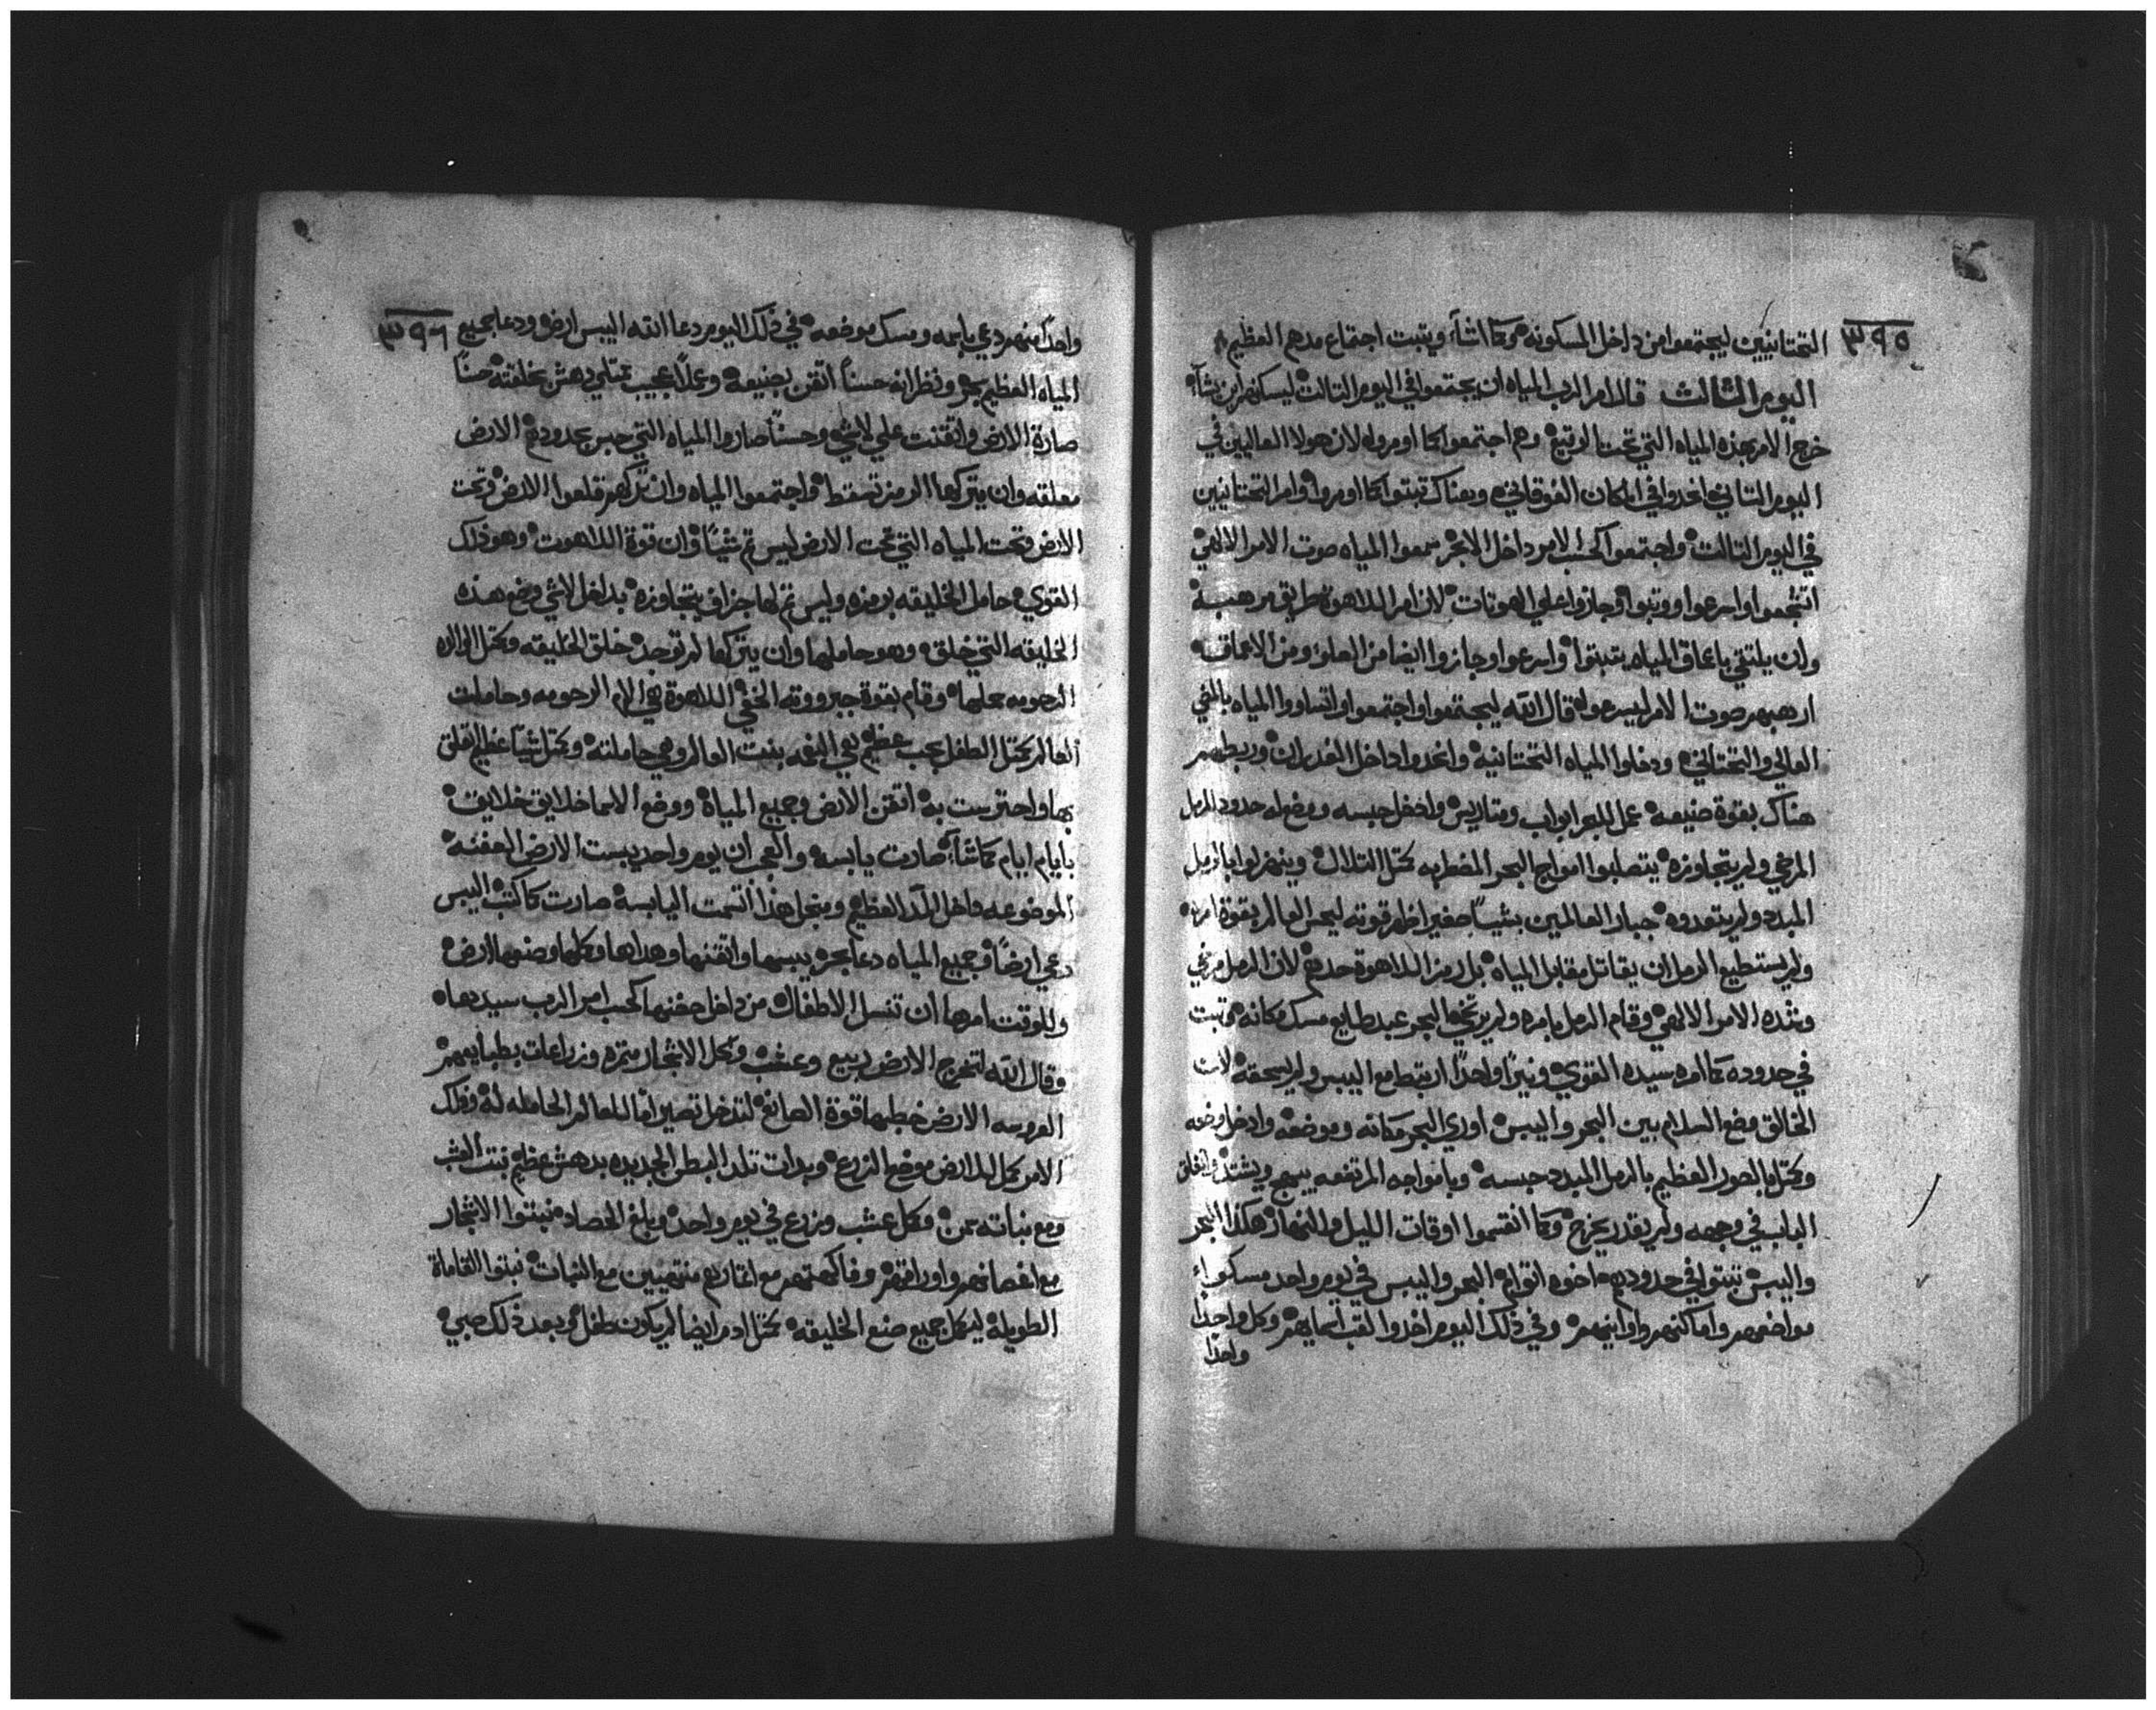 ٣٩٥
التحتانيين ليجتمعوا من داخل المسكونه وكما شاء ويتبت اجتماع مدهم العظيم
اليوم الثالث قال امر الرب المياه ان يجتمعوا في اليوم التالت ليسكنهم اين شاء
خرج الامر بهذه المياه التي تحت الرقيع وهم اجتمعوا كما اومروا لان هولا العاليين في
اليوم التاني اخدوا في المكان الفوقاني وهناك تبتوا كما اومروا وامر التحتانيين
في اليوم التالت واجتمعوا كحسب الامر داخل الابحر سمعوا المياه صوت الامر الالهي
واسرعوا ووتبوا وجازوا علي الهوتات لان امر اللاهوة طريق مرهبه
وان يلتقي باعماق المياه يتبتوا واسرعوا وجازوا ايضا من العلو ومن الاعماق
ارهبهم صوت الامر ليسرعوا قال الله ليجتمعوا واجتمعوا واتساووا المياه بالمضي
العالي والتحتاني ودخلوا المياه التحتانيه واخدوا داخل الغدران وربطهم
هناك بقوة صنيعه عمل للبحر ابواب ومتاريس وادخل حبسه ووضع له حدود الرمل
المرخي ولم يتجاوزه يتصلبوا امواج البحر المضطربه كمتل التلال وينهزلوا بالرمل
المبدد ولم يتعدوه جبار العالمين بشياً صغير اظهر قوته ليحس العالم بقوة امره
ولم يستطيع الرمل ان يقاتل مقابل المياه بل رمز اللاهوة حدهم لان الرمل مرخي
وشده الامر الالهي وقام الرمل بامره ولم يرتخي البحر عبد طايع مسك مكانه وتبت
في حدوده كما امره سيده القوي ونيراً واحداً ارتبط مع اليبس ولم يسحقه لان
الخالق وضع السلام بين البحر واليبس اوري البحر مكانه وموضعه وادخل وضعه
وكمتل بالصور العظيم بالرمل المبدد حبسه وبامواجه المرتفعه يبهج ويشتد وانغلق
الباب في وجهه ولم يقدر يخرج وكما انقسموا اوقات الليل والنهار هكذا البحر
واليبس تبتوا في حدودهم اخوه اتوام البحر واليبس في يوم واحد مسكوا
مواضعهم واماكنهم واوانيهم وفي ذلك اليوم اخدوا لقب اسمايهم وكل واحداً
واحداً
٣٩٦
واحداً منهم دعي باسمه ومسك موضعه في ذلك اليوم دعا الله اليبس ارض ودعا جميع
المياه العظيم بحر ونظر انه حسناً اتقن بصنيعه وعملاً عجيب ممتلي دهش بخلقته حسناً
صارة الارض واتقنت علي لاشي وحسناً صاروا المياه التي حبس بحدودهم الارض
معلقه وان يتركها الرمز تسقط واجتمعوا المياه وان تركهم قلعوا الارض وتحت
الارض وتحت المياه التي تحت الارض ليس تم شياً وان قوة اللاهوت وهو ذلك
القوي حامل الخليقه برمزه وليس تم لها جزاف يتجاوزه بداخل لاشي وضع هذه
الخليقه التي خلق وهو حاملها وان يتركها لم توجد خلق الخليقه وكمتل الوالده
الرحومه حملها وقام بقوة جبرووته الخفي اللاهوة هي الام الرحومه وحاملت
العالم كمتل الطفل بحب عظيم هي النعمه بنت العالم وهي حاملته وكمتل شياً عظيم قلق
بها واحترست به اتقن الارض وجميع المياه ووضع الاسما خلايق خلايق
بايام ايام كما شاء صارت يابسه والعجب ان يوم واحد يبست الارض العفنه
الموضوعه داخل اللد العظيم ومنجل هذا اتسمت اليابسه صارت كما كتب اليبس
دعي ارضاً وجميع المياه دعا بحر يبسها واتقنها وهداها وكلها وصنعها ارض
وللوقت امرها ان تنسل الاطفال من داخل حضنها كحسب امر الرب سيدها
وقال الله لتخرج الارض ربيع وعشب وكل الاشجار متمره وزراعات بطبايعهم
العروسه الارض خطبها قوة الصانع لتدخل تصير اماً للعالم الحامله له وذلك
الامر كمل للارض موضع الزرع وبدات تلد البطن الجديده بدهش عظيم نبت العشب
ومع نباته سمن وكل عشب وزرع في يوم واحد وبلغ الحصاد نبتوا الاشجار
مع اغصانهم واوراقهم وفاكهتهم مع اتمارهم منتهيين مع النبات نبتوا القاماة
الطويله ليكمل جميع صنع الخليقه كمتل ادم ايضاً لم يكون طفل وبعد ذلك صبي